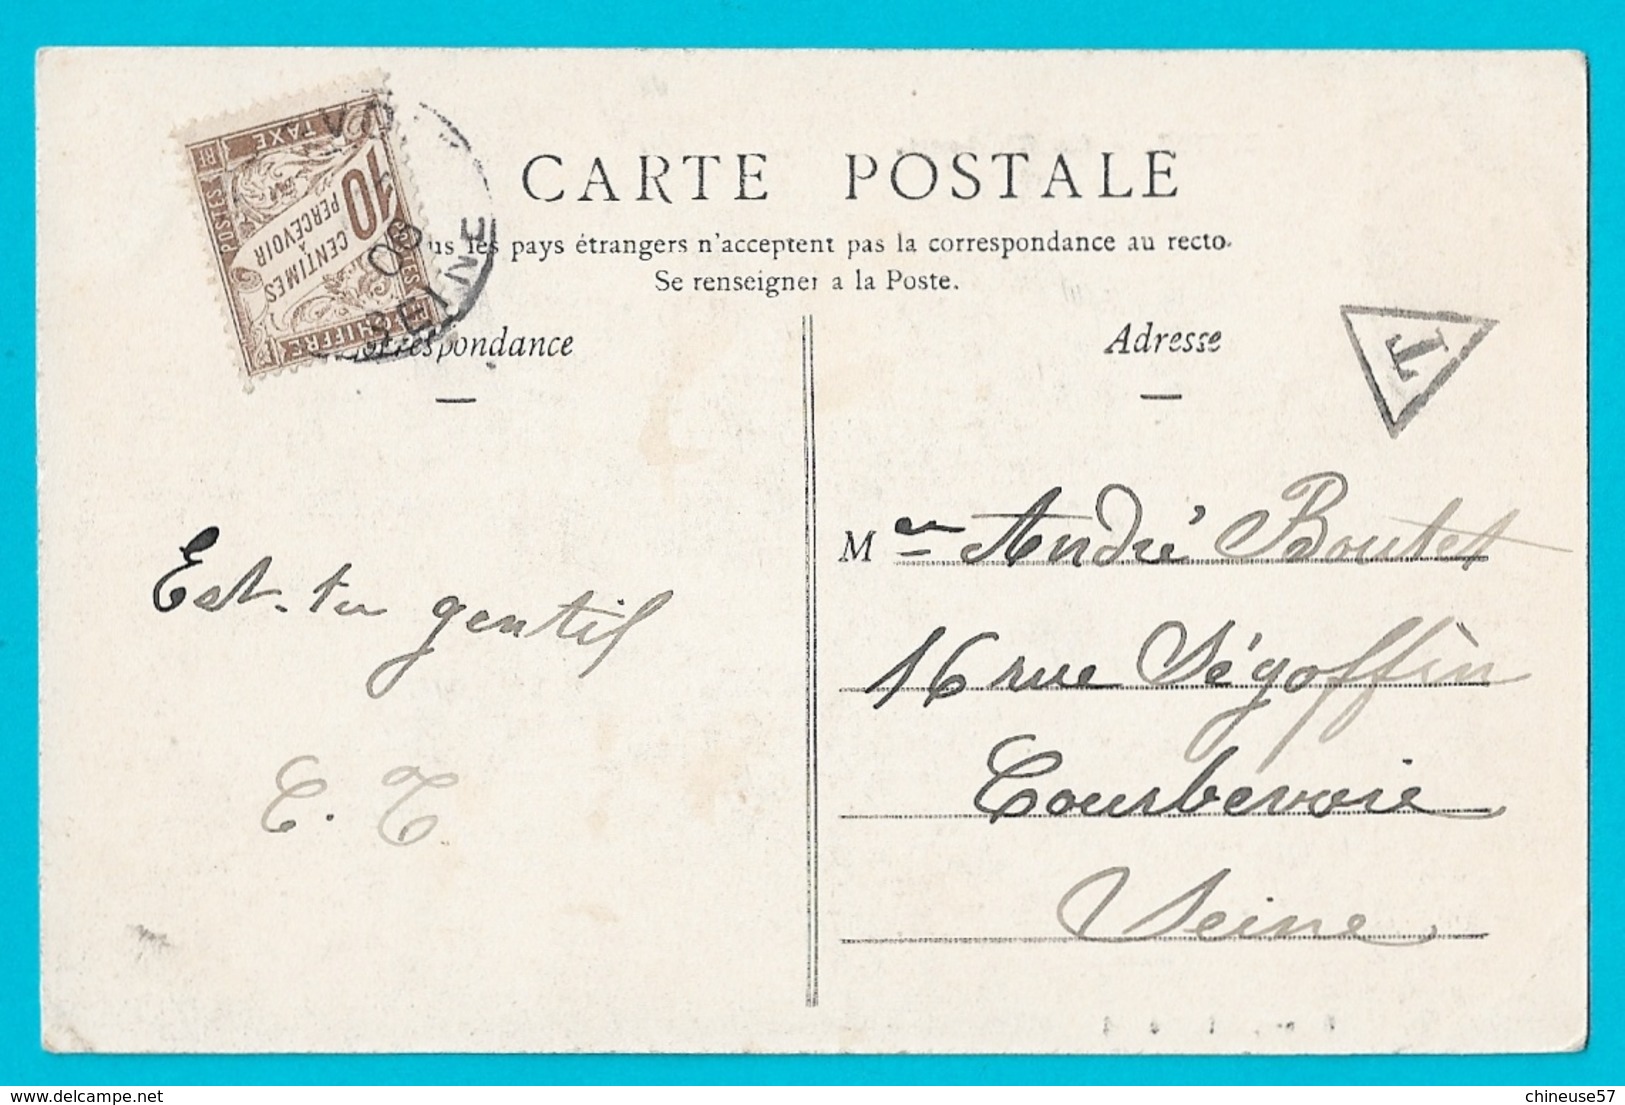 CARTE POSTALE
us les pays étrangers n'acceptent pas la correspondance au recto.
Se renseigner a la Poste.
POSTES
RF
TAXE
10
CENTIMES
À
PERCEVOIR
CHIFFRE
SEINE
Correspondance
Adresse
T
Est-tu gentil
C. C
M André Boutet
16 rue Ségoffin
Courbevoie
Seine
chineuse57